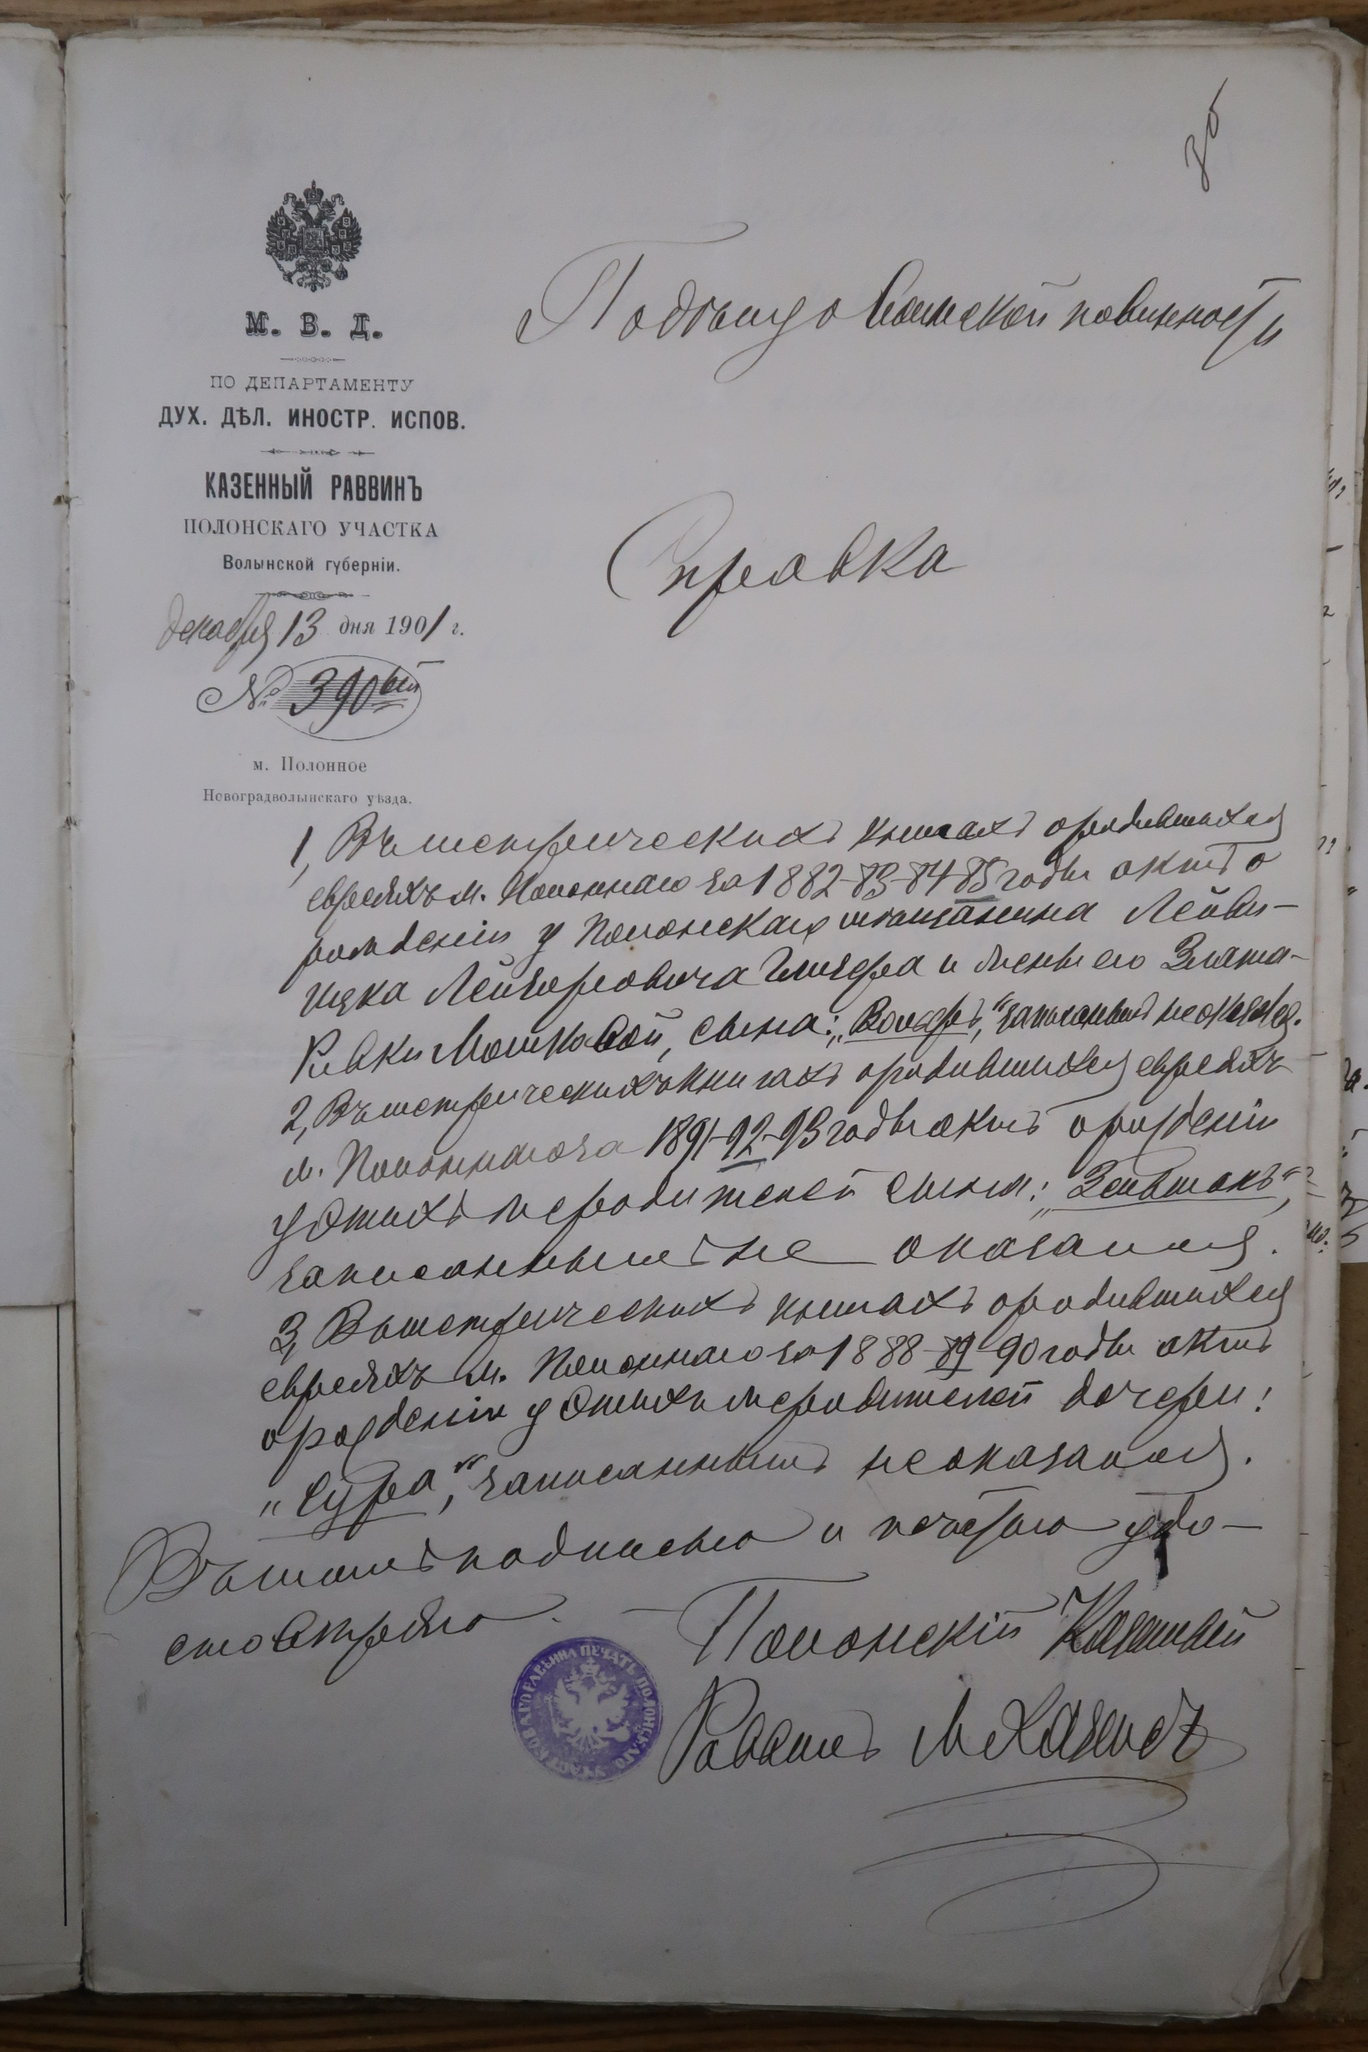 30
М. В. Д.
ПО ДЕПАРТАМЕНТУ
ДУХ. ДѢЛ. ИНОСТР. ИСПОВ.
КАЗЕННЫЙ РАВВИНЪ
ПОЛОНСКАГО УЧАСТКА
Волынской губерніи.
декабря 13 дня 1901 г.
№ 390
м. Полонное
Новоградволынскаго уѣзда.
По дѣлу о воинской повинности
Справка
1, Въ метрическихъ книгахъ о родившихся
евреяхъ м. Полоннаго за 1882-83-84-85 годы актъ о
рожденіи у Полонскаго мѣщанина Лейви-
Ицка Лейзеровича и жены его Злата-
Ривки Мошковой, сына: „Вольфъ," записаннымъ не оказался.
2, Въ метрическихъ книгахъ о родившихся евреяхъ
м. Полоннаго за 1891-92-93 годы актъ о рожденіи
у этихъ же родителей сына:
записаннымъ не оказался.
3, Въ метрическихъ книгахъ о родившихся
евреяхъ м. Полоннаго за 1888-89-90 годы актъ
о рожденіи у этихъ же родителей дочери:
„Сура", записаннымъ не оказался.
Въ чемъ подписью и печатью удо-
стовѣряю.
Полонскій Казенный
Раввинъ М Хазинъ
ПЕЧАТЬ ПОЛОНСКАГО УЧАСТКОВАГО РАВВИНА